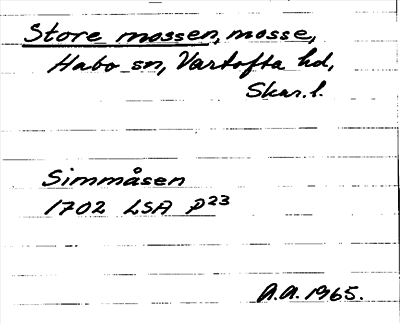 Store mossen, mosse,
Habo sn, Vartofta hd,
Skar. l.
Simmåsen
1702 LSA P²³
A.A. 1965.